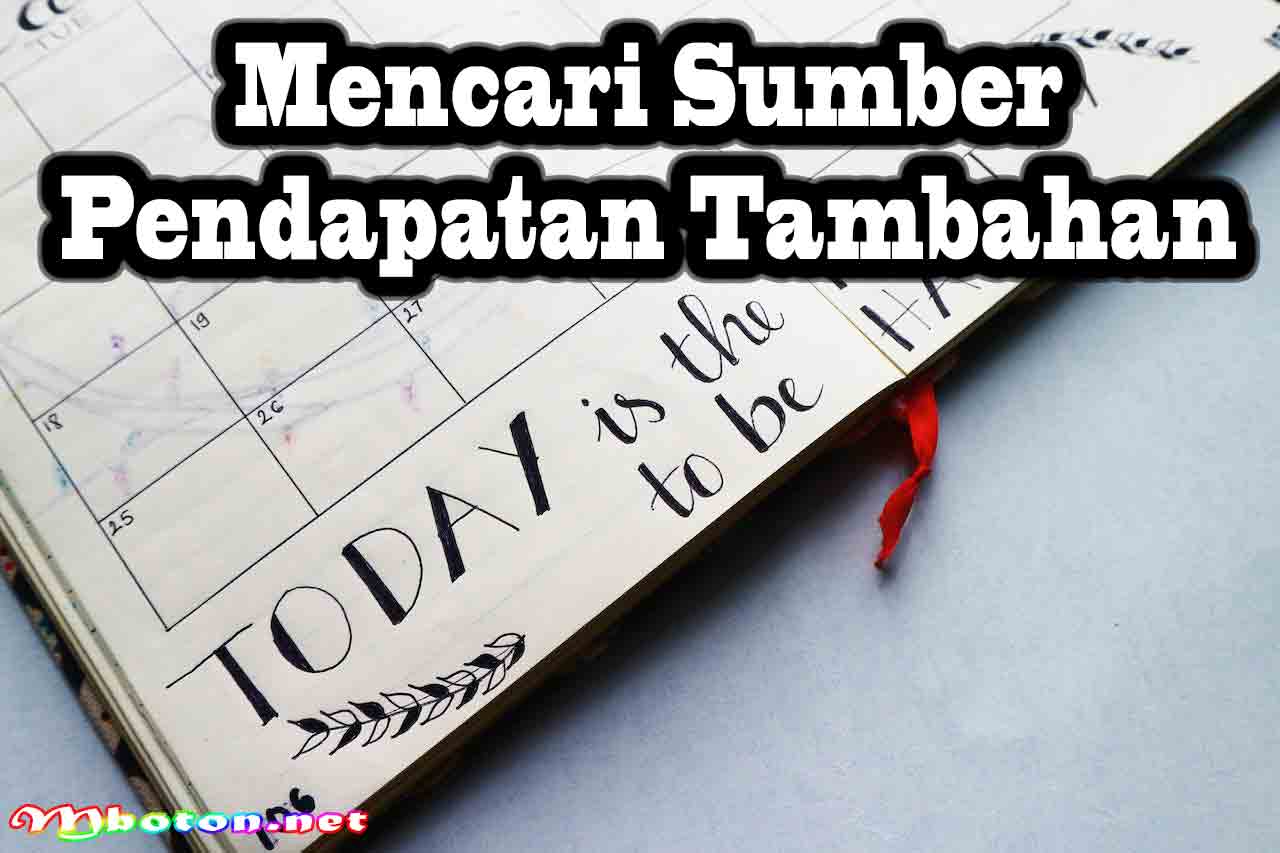 Mencari Sumber
Pendapatan Tambahan
TUE
19
27
18
26
25
TODAY is the
to be
HA
Mboton.net